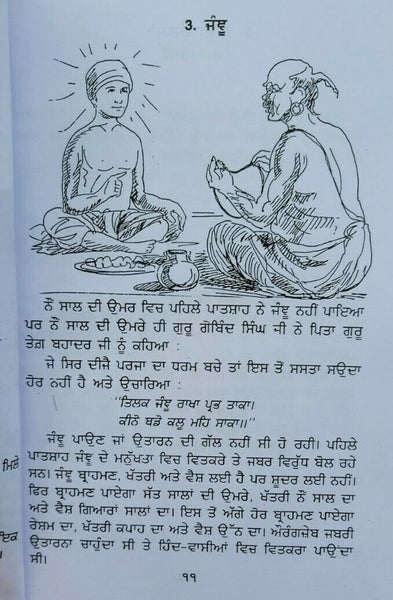 3. ਜੰਞੂ
ਨੌ ਸਾਲ ਦੀ ਉਮਰ ਵਿਚ ਪਹਿਲੇ ਪਾਤਸ਼ਾਹ ਨੇ ਜੰਞੂ ਨਹੀਂ ਪਾਇਆ
ਪਰ ਨੌ ਸਾਲ ਦੀ ਉਮਰੇ ਹੀ ਗੁਰੂ ਗੋਬਿੰਦ ਸਿੰਘ ਜੀ ਨੇ ਪਿਤਾ ਗੁਰੂ
ਤੇਗ਼ ਬਹਾਦਰ ਜੀ ਨੂੰ ਕਹਿਆ :
ਜੇ ਸਿਰ ਦੀਜੈ ਪਰਜਾ ਦਾ ਧਰਮ ਬਚੇ ਤਾਂ ਇਸ ਤੋਂ ਸਸਤਾ ਸਉਦਾ
ਹੋਰ ਨਹੀਂ ਹੈ ਅਤੇ ਉਚਾਰਿਆ :
"ਤਿਲਕ ਜੰਞੂ ਰਾਖਾ ਪ੍ਰਭ ਤਾਕਾ।
ਕੀਨੋ ਬਡੋ ਕਲੂ ਮਹਿ ਸਾਕਾ॥"
ਜੰਞੂ ਪਾਉਣ ਜਾਂ ਉਤਾਰਨ ਦੀ ਗੱਲ ਨਹੀਂ ਸੀ ਹੋ ਰਹੀ। ਪਹਿਲੇ
ਪਾਤਸ਼ਾਹ ਜੰਞੂ ਦੇ ਮਨੁੱਖਤਾ ਵਿਚ ਵਿਤਕਰੇ ਤੇ ਜਬਰ ਵਿਰੁੱਧ ਬੋਲ ਰਹੇ
ਸਨ। ਜੰਞੂ ਬ੍ਰਾਹਮਣ, ਖੱਤਰੀ ਅਤੇ ਵੈਸ਼ ਲਈ ਹੈ ਪਰ ਸ਼ੂਦਰ ਲਈ ਨਹੀਂ।
ਫਿਰ ਬ੍ਰਾਹਮਣ ਪਾਏਗਾ ਸੱਤ ਸਾਲਾਂ ਦੀ ਉਮਰੇ, ਖੱਤਰੀ ਨੌਂ ਸਾਲ ਦਾ
ਅਤੇ ਵੈਸ਼ ਗਿਆਰਾਂ ਸਾਲਾਂ ਦਾ। ਇਸ ਤੋਂ ਅੱਗੇ ਹੋਰ ਬ੍ਰਾਹਮਣ ਪਾਏਗਾ
ਰੇਸ਼ਮ ਦਾ, ਖੱਤਰੀ ਕਪਾਹ ਦਾ ਅਤੇ ਵੈਸ਼ ਉੱਨ ਦਾ। ਔਰੰਗਜ਼ੇਬ ਜਬਰੀ
ਉਤਾਰਨਾ ਚਾਹੁੰਦਾ ਸੀ ਤੇ ਹਿੰਦ-ਵਾਸੀਆਂ ਵਿਚ ਵਿਤਕਰਾ ਪਾਉਂਦਾ
ਸੀ।
੧੧
ਮਿਲੇ